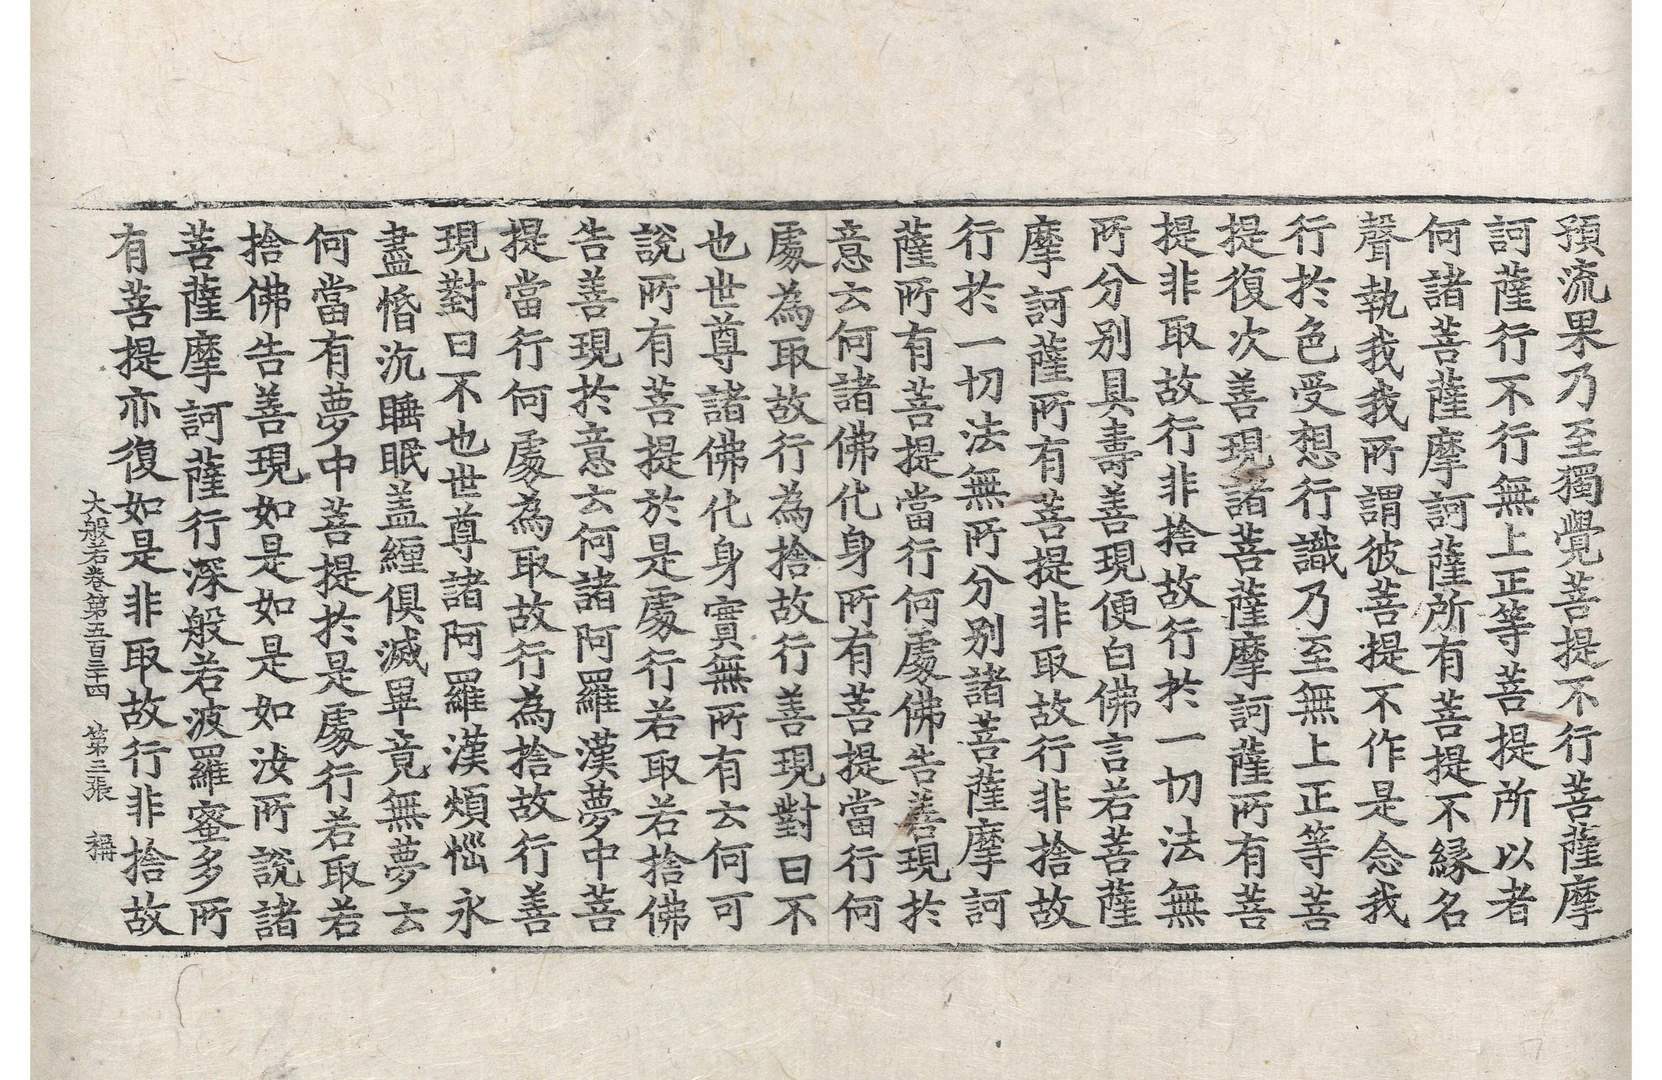 預流果乃至獨覺菩提不行菩薩摩
訶薩行不行無上正等菩提所以者
何諸菩薩摩訶薩所有菩提不緣名
聲執我我所謂彼菩提不作是念我
行於色受想行識乃至無上正等菩
提復次善現諸菩薩摩訶薩所有菩
提非取故行非捨故行於一切法無
所分別具壽善現便白佛言若菩薩
摩訶薩所有菩提非取故行非捨故
行於一切法無所分別諸菩薩摩訶
薩所有菩提當行何處佛告善現於
意云何諸佛化身所有菩提當行何
處為取故行為捨故行善現對曰不
也世尊諸佛化身實無所有云何可
說所有菩提於是處行若取若捨佛
告善現於意云何諸阿羅漢夢中菩
提當行何處為取故行為捨故行善
現對曰不也世尊諸阿羅漢煩惱永
盡惛沉睡眠盖纏俱滅畢竟無夢云
何當有夢中菩提於是處行若取若
捨佛告善現如是如是如汝所說諸
菩薩摩訶薩行深般若波羅蜜多所
有菩提亦復如是非取故行非捨故
大般若卷第五百三十四　第三張